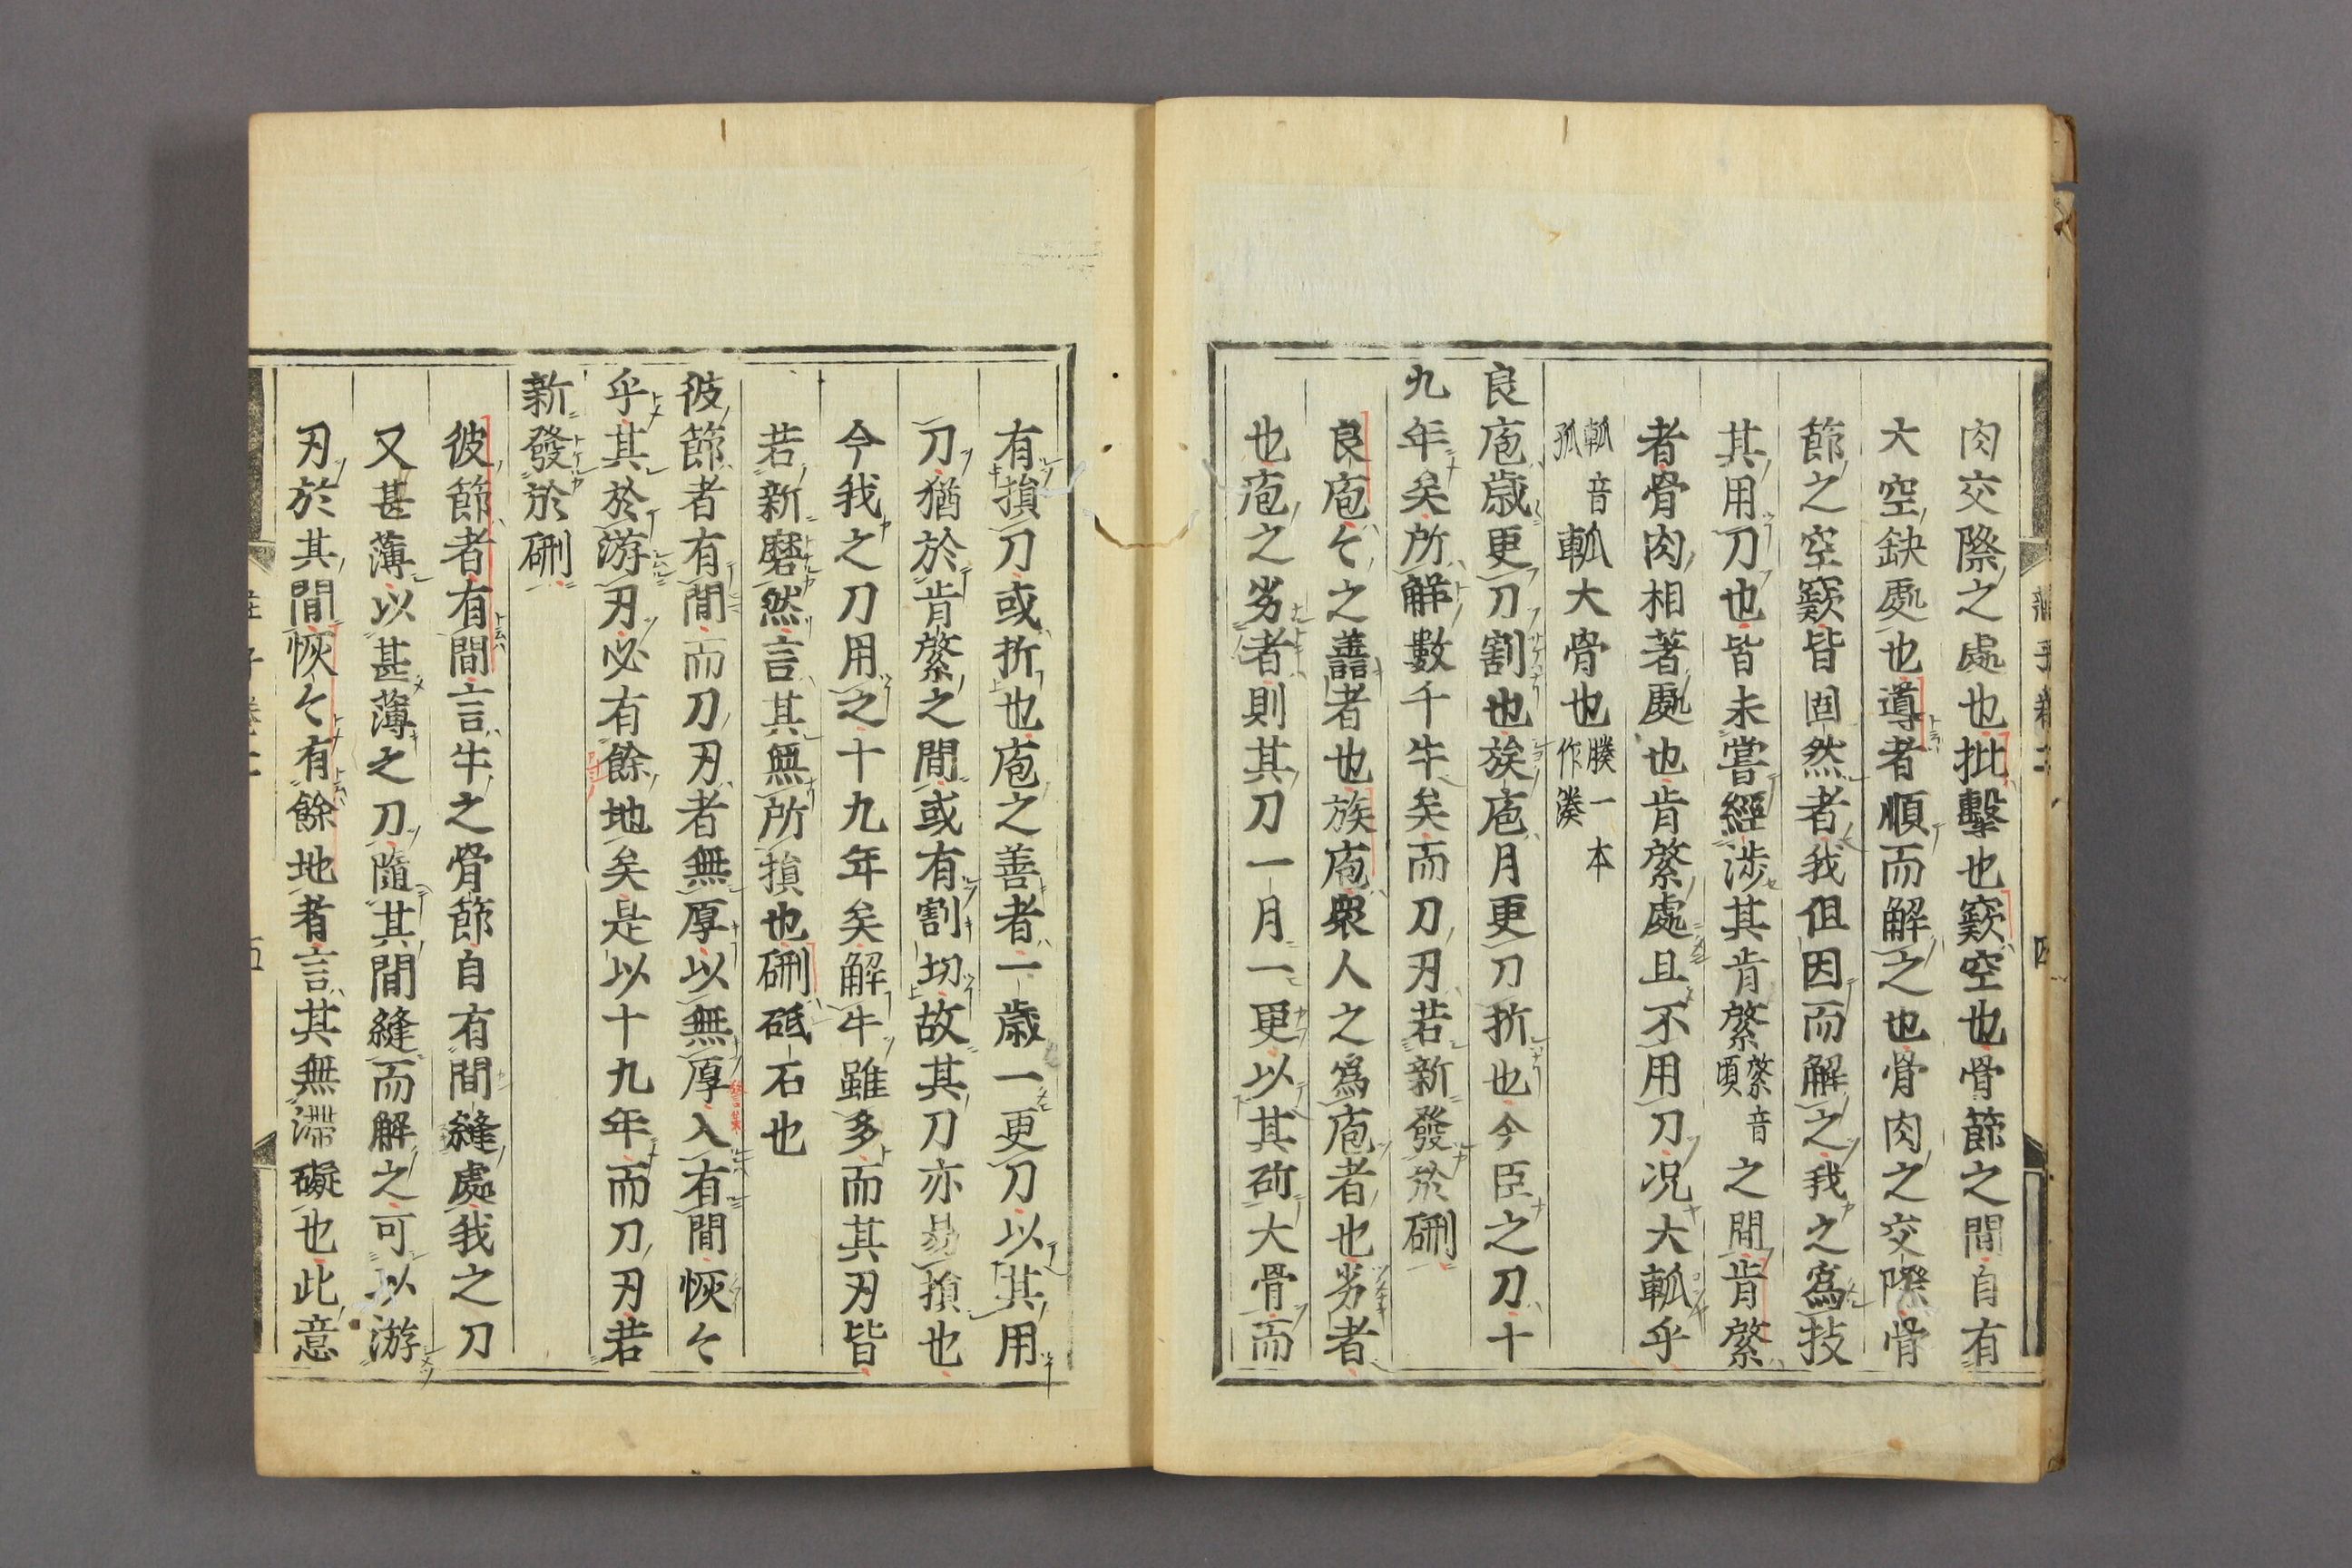 肉交際之處也批擊也窾空也骨節之間自有
大空缺處也導者順而解之也骨肉之交際骨
節之空窾皆固然者我但因而解之我之爲技
其用刀也皆未嘗經涉其肯綮綮音頃之間肯綮
者骨肉相著處也肯綮處且不用刀况大軱乎
軱音孤軱大骨也腠一本作湊
良庖歲更刀割也族庖月更刀折也今臣之刀十
九年矣所解數千牛矣而刀刃若新發於硎
良庖〻之譱者也族庖衆人之爲庖者也劣者
也庖之劣者則其刀一月一更以其斫大骨而
有損刀或折也庖之善者一歲一更刀以其用
刀猶於肯綮之間或有割切故其刀亦易損也
今我之刀用之十九年矣解牛雖多而其刃皆
若新磨然言其無所損也硎砥石也
彼節者有間而刀刃者無厚以無厚入有間恢〻
乎其於游刃必有餘地矣是以十九年而刀刃若
新發於硎
彼節者有間言牛之骨節自有間縫處我之刀
又甚薄以甚薄之刀隨其間縫而解之可以游
刃於其間恢〻有餘地者言其無滯礙也此意